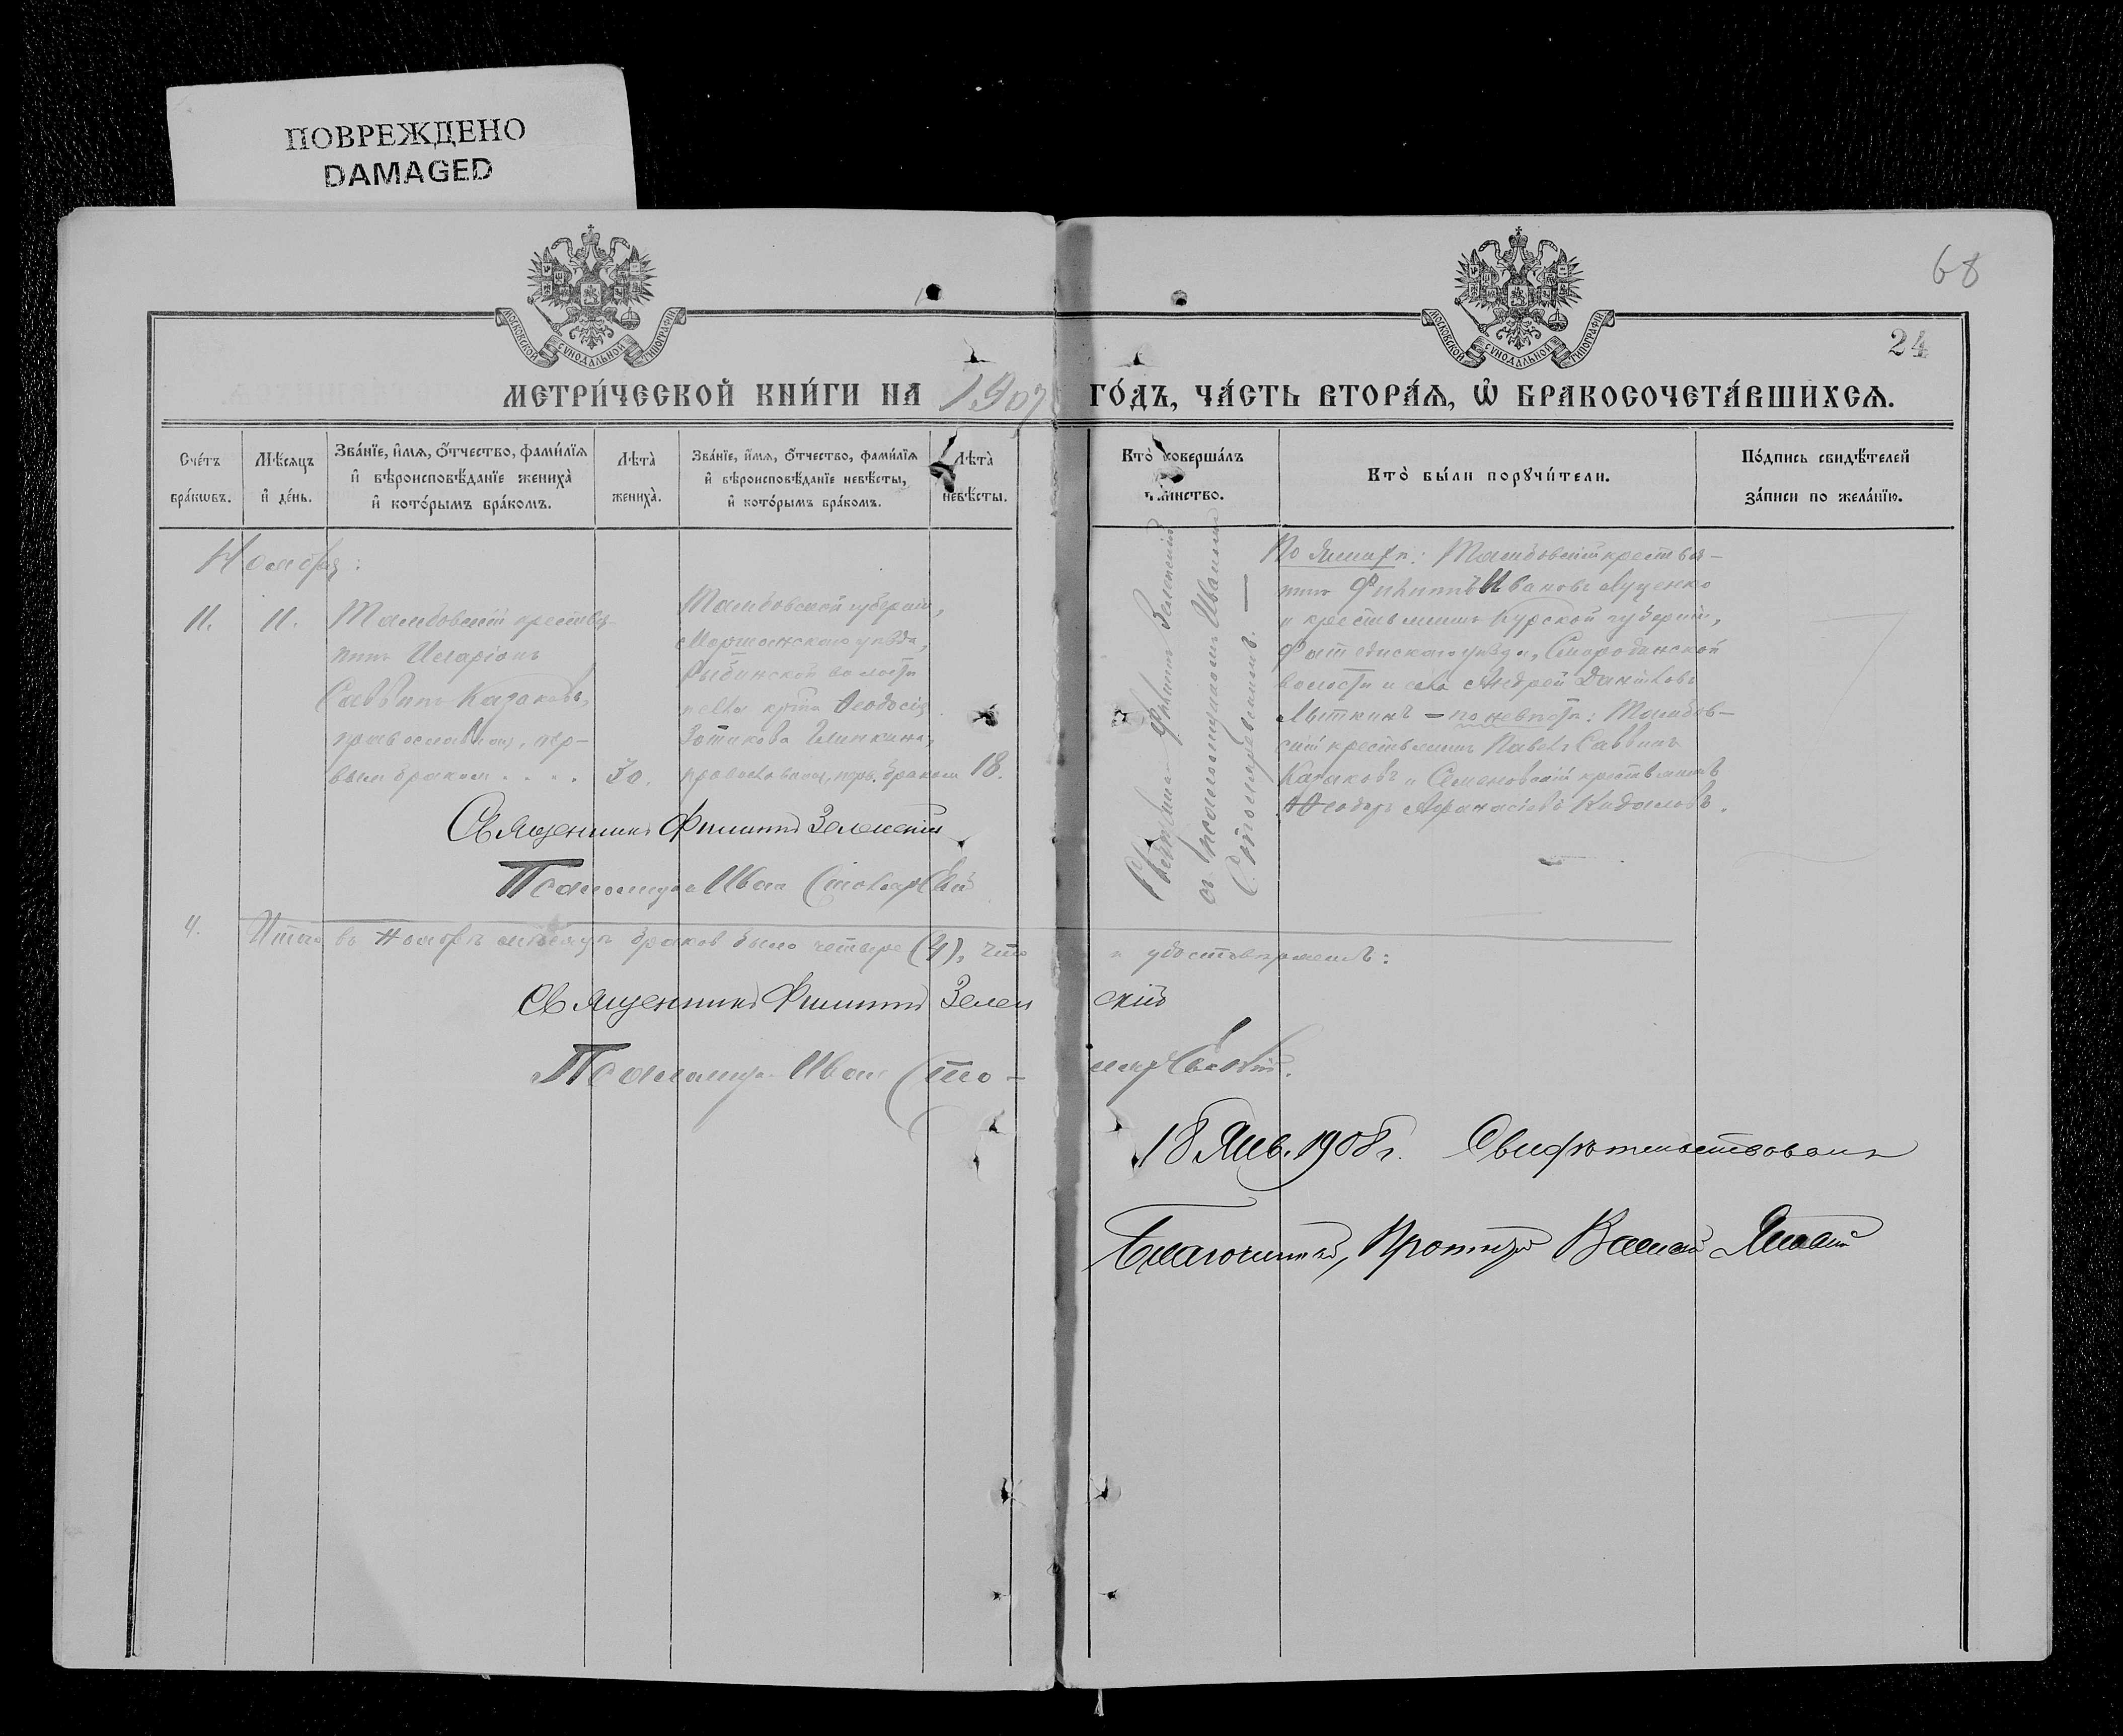 ПОВРЕЖДЕНО
DAMAGED
68
24
МОСКОВСКОЙ СѴНОДАЛЬНОЙ ТИПОГРАФІИ
МОСКОВСКОЙ СѴНОДАЛЬНОЙ ТИПОГРАФІИ
МЕТРИ́ЧЕСКОЙ КНИ́ГИ НА 1907 ГО́ДЪ, ЧА́СТЬ ВТОРА́Ѧ, Ѡ҆ БРАКОСОЧЕТА́ВШИХСѦ.
Сче́тъ
бра́кѡвъ.
Мѣ́сѧцъ
и҆ де́нь.
Зва́нїе, и҆́мѧ, ѻ҆́тчество, фами́лїѧ
и҆ вѣроисповѣ́данїе жениха̀
и҆ кото́рымъ бра́комъ.
Лѣта̀
жениха̀.
Зва́нїе, и҆́мѧ, ѻ҆́тчество, фами́лїѧ
и҆ вѣроисповѣ́данїе невѣ́сты,
и҆ кото́рымъ бра́комъ.
Лѣта̀
невѣ́сты.
Кто̀ соверша́лъ
таинство.
Кто̀ бы́ли порꙋчи́тели.
По́дпись свидѣ́телей
за́писи по жела́нїю.
Ноябрь:
11.
11.
Тамбовскій крестья-
нинъ Иларіонъ
Саввинъ Казаковъ,
православный, пер-
вымъ бракомъ . . . .
30.
Тамбовской губерніи,
Моршанскаго уѣзда,
Рыбинской волости
села Ѳеодосія
Зотикова
православная, перв. бракомъ
18.
Священникъ Филиппъ Зеленскій
съ псаломщикомъ Иваномъ
Столяревскимъ. —
По женихѣ: Тамбовскій крестья-
нинъ Филиппъ Ивановъ Луценко
и крестьянинъ Курской губерніи,
Фатежскаго уѣзда, Смородинской
волости и села Андрей Даниловъ
Лыткинъ – по невѣстѣ: Тамбов-
скій крестьянинъ Павелъ Саввинъ
Казаковъ и Семеновскій крестьянинъ
Ѳеодоръ Афанасіевъ Кидаловъ.
Священникъ Филиппъ Зеленскій
Псаломщикъ Иванъ Столяревскій
4. Итого въ Ноябрѣ мѣсяцѣ браковъ было четыре (4), что и удостовѣряемъ:
Священникъ Филиппъ Зеленскій
Псаломщикъ Иванъ Сто-ляревскій.
18 Янв. 1908 г. Свидѣтельствовалъ
Благочинный, Протоіер